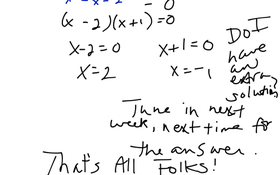 x² - x - 2 = 0
(x - 2)(x + 1) = 0
x - 2 = 0    x + 1 = 0
x = 2    x = -1
Do I
have
an
extra
solution
Tune in next
week, next time for
the answer.
That's All Folks!